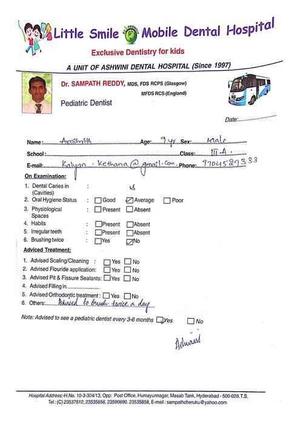 Little Smile Mobile Dental Hospital
Exclusive Dentistry for kids
A UNIT OF ASHWINI DENTAL HOSPITAL (Since 1997)
Dr. SAMPATH REDDY, MDS, FDS RCPS (Glasgow)
MFDS RCS (England)
Pediatric Dentist
Date:
Name: Age: 9 yr Sex: Male
School: Class: III A
E-mail: Phone:
On Examination:
1. Dental Caries in (Cavities) :
2. Oral Hygiene Status : Good Average Poor
3. Physiological Spaces : Present Absent
4. Habits : Present Absent
5. Irregular teeth : Present Absent
6. Brushing twice : Yes No
Advised Treatment:
1. Advised Scaling/Cleaning : Yes No
2. Advised Flouride application: Yes No
3. Advised Pit & Fissure Sealants: Yes No
4. Advised Filling in
5. Advised Orthodontic treatment : Yes No
6. Others: Advised to brush twice a day
Note: Advised to see a pediatric dentist every 3-6 months Yes No
Hospital Address: H.No. 10-3-304/13, Opp: Post Office, Humayunnagar, Masab Tank, Hyderabad - 500 028. T.S.